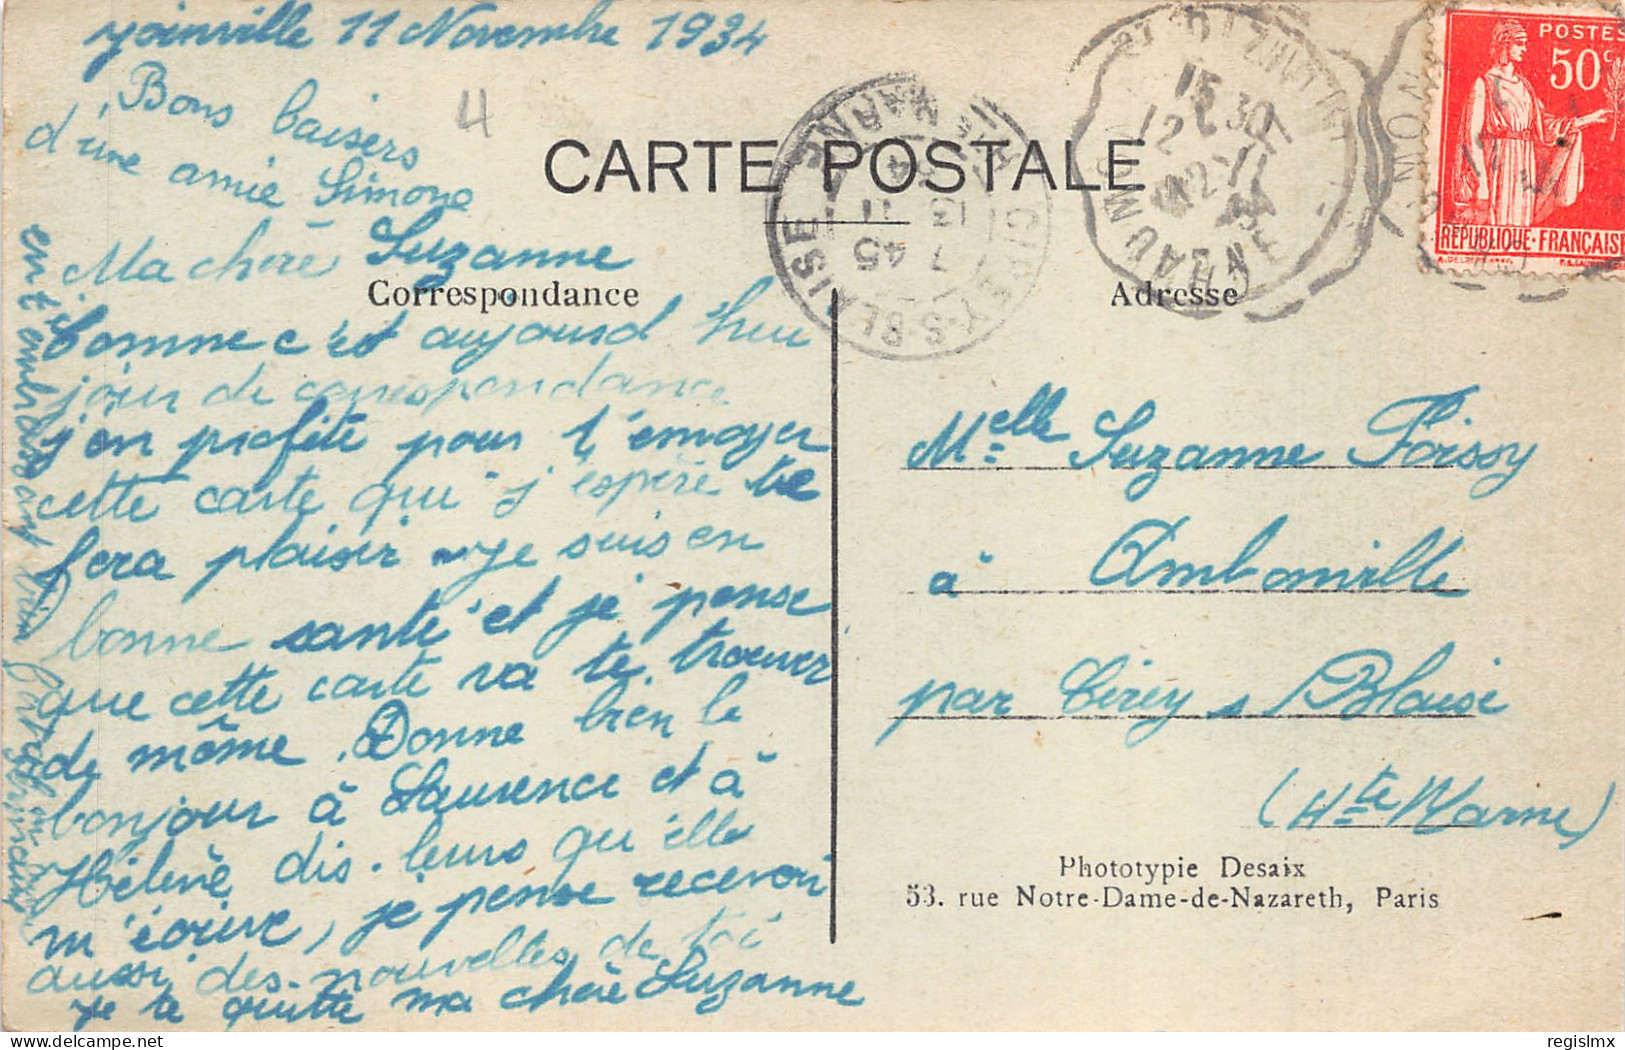 Joinville 11 Novembre 1934
Bons baisers
d'une amie Simone
4
CARTE POSTALE
Ma chère Suzanne
Correspondance
Adresse
Comme c'est aujourd'hui
jour de correspondance
j'en profite pour t'envoyer
cette carte qui j'espère te
fera plaisir je suis en
bonne santé et je pense
que cette carte va te trouver
de même. Donne bien le
bonjour à Laurence et à
Hélène, dis-leurs qu'elle
m'écrive, je pense recevoir
aussi des nouvelles de toi
Je te quitte ma chère Suzanne
en t'embrassant bien
Melle Suzanne Foissy
à Ambonville
par Cirey s Blaise
(Hte Marne)
Phototypie Desaix
53. rue Notre-Dame-de-Nazareth, Paris
POSTES
50c
REPUBLIQUE-FRANÇAISE
CIREY-S-BLAISE
Hte MARNE
7 45
13
11
34
15 30
12-11
34
regislmx